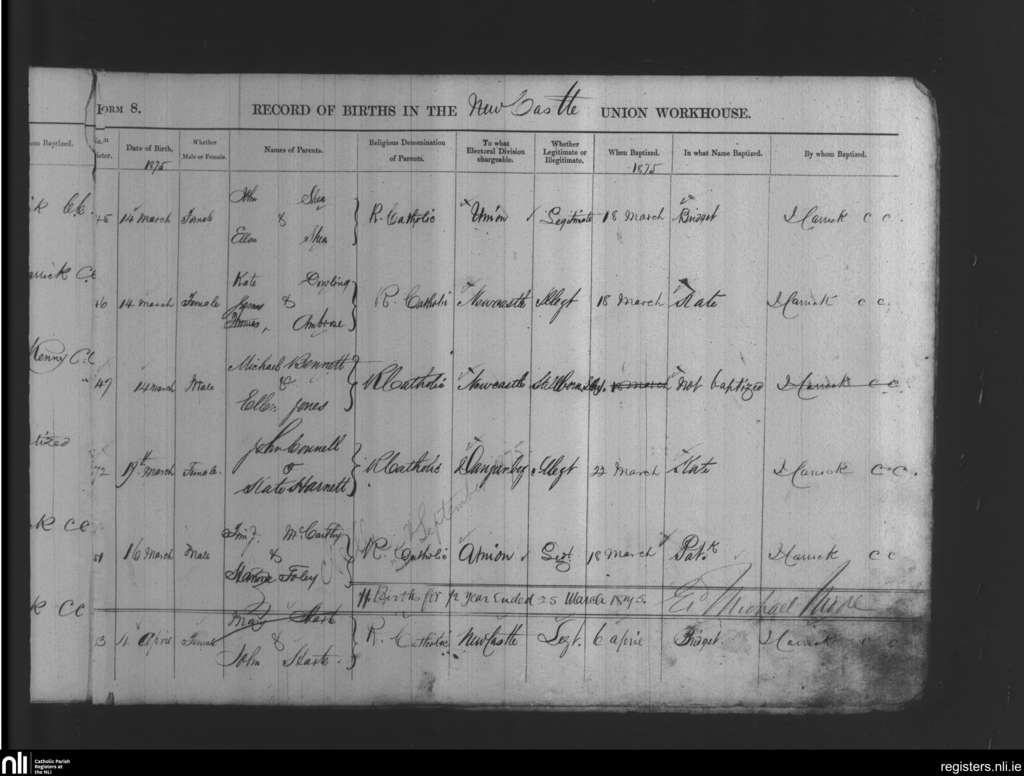 FORM 8. RECORD OF BIRTHS IN THE New Castle UNION WORKHOUSE.
Baptized. Date of Birth. Whether Male or Female. Names of Parents. Religious Denomination of Parents. To what Electoral Division chargeable. Whether Legitimate or Illegitimate. When Baptized. In what Name Baptized. By whom Baptized.
1875 1875
John Shea
C.C. 45 14 March Female & R. Catholic Union Legitimate 18 March Bridget J Carrick C C.
Ellen Shea
Kate Dowling
14 March Female & R. Catholic Newcastle Illegt 18 March Kate J Carrick C C.
James, Ambrose
Kenny C.C
Michael Bennett
47 14 March Male & R Catholic Newcastle Stillborn 18 March Not baptized J Carrick C C.
Ellen Jones
John Connell
72 19th March Female & R Catholic Illegt 22 March Kate J Carrick C C.
Kate Harnett
September
CC
Timy. McCarthy
16 March Male & R. Catholic Union Legt 18 March Patk J Carrick C C
Foley
11 Births for ½ Year Ended 25 March 1875. Michael
CC
Mary Harte
4 April Female & R. Catholic NewCastle Legt. 6 April Bridget J Carrick C C
John Harte.
nli Catholic Parish Registers at the NLI
registers.nli.ie